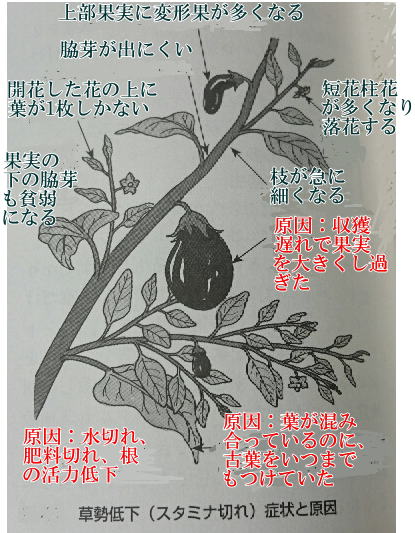 上部果実に変形果が多くなる
脇芽が出にくい
開花した花の上に
葉が1枚しかない
短花柱花
が多くなり
落花する
果実の
下の脇芽
も貧弱
になる
枝が急に
細くなる
原因：収穫
遅れで果実
を大きくし過
ぎた
原因：水切れ、
肥料切れ、根
の活力低下
原因：葉が混み
合っているのに、
古葉をいつまで
もつけていた
草勢低下（スタミナ切れ）症状と原因